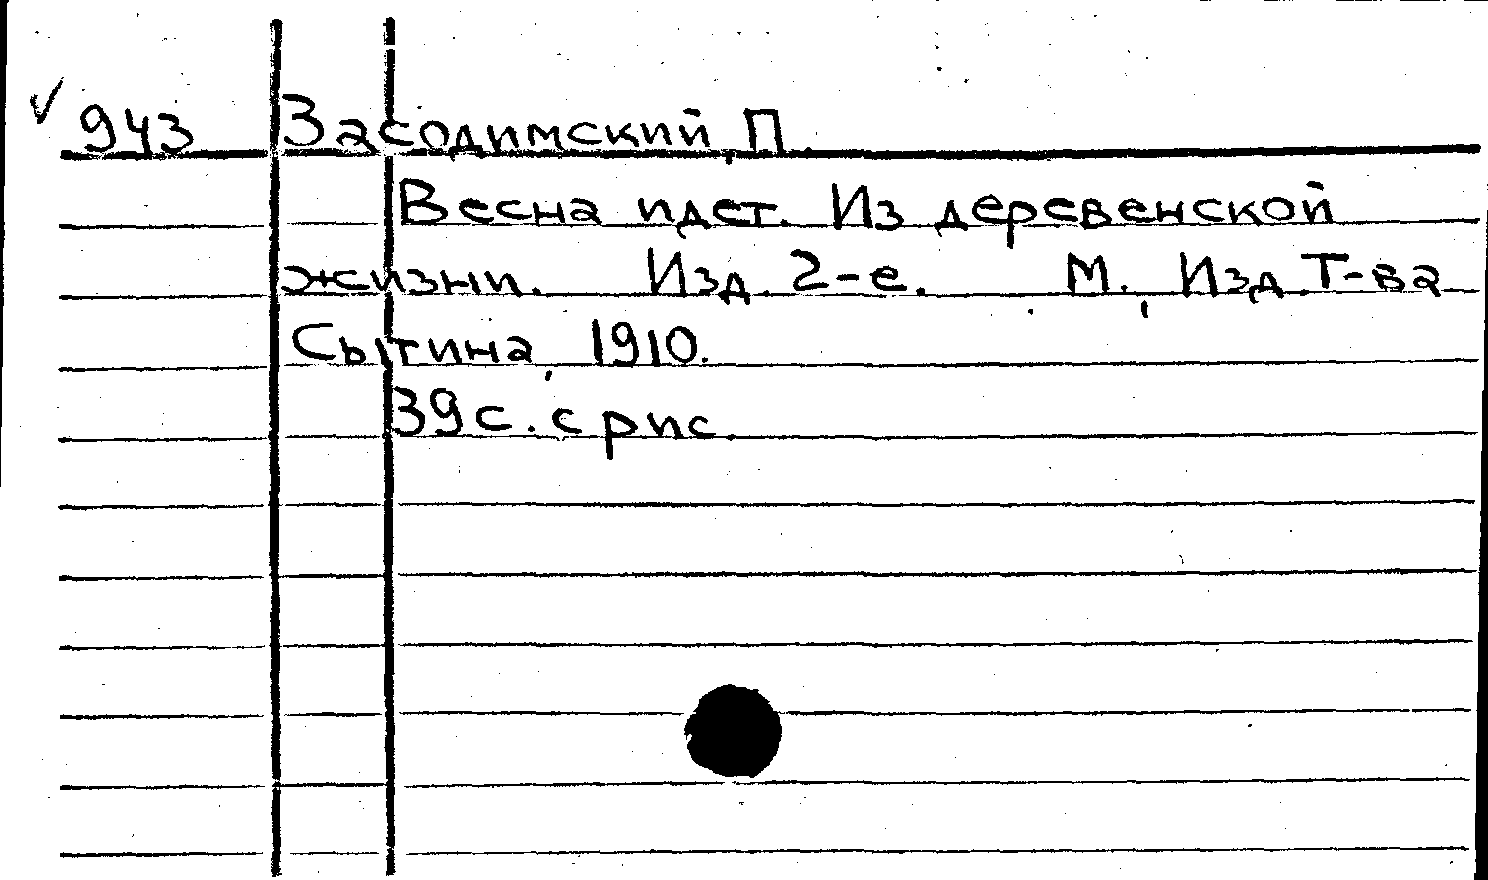 ✓ 943 Засодимский, П.
Весна идет. Из деревенской
жизни. Изд. 2-е. М., Изд. Т-ва
Сытина, 1910.
39 с. с рис.